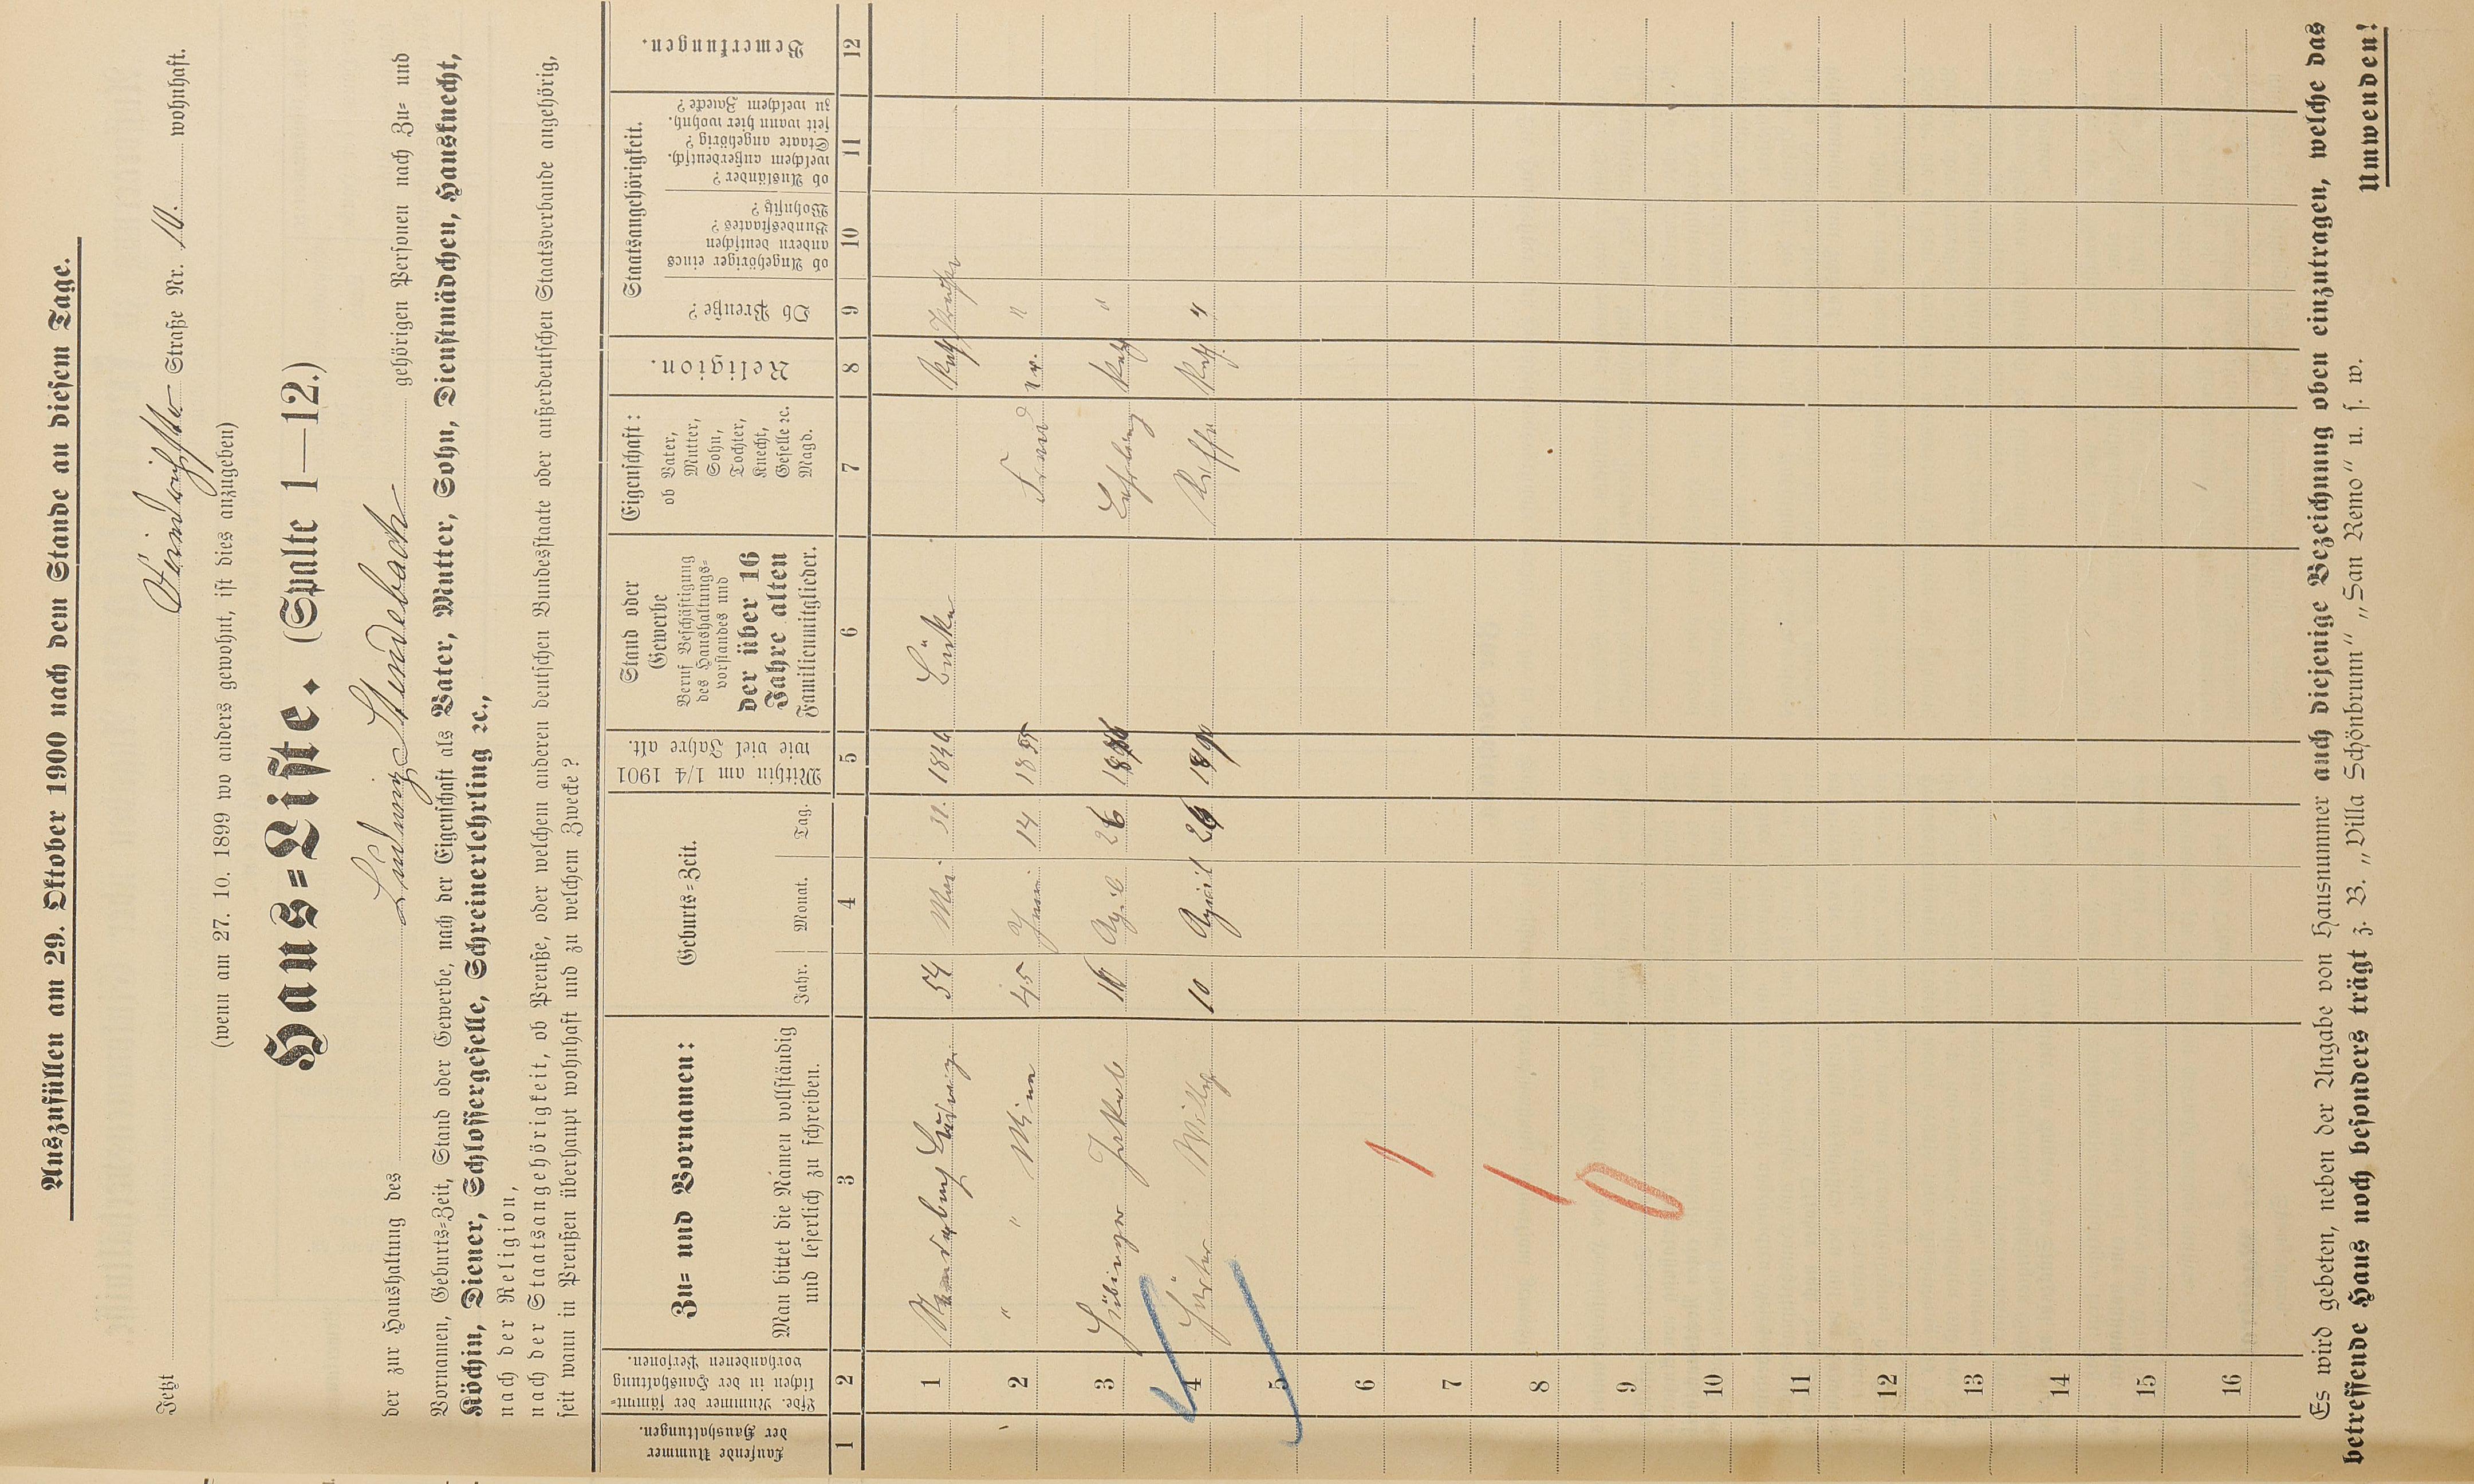 Auszufüllen am 29. Oktober 1900 nach dem Stande an diesem Tage.
Jetzt Straße Nr. 10. wohnhaft.
(wenn am 27. 10. 1899 wo anders gewohnt, ist dies anzugeben)
Haus=Liste. (Spalte 1—12.)
der zur Haushaltung des Ludwig Stendebach gehörigen Personen nach Zu= und
Vornamen, Geburts=Zeit, Stand oder Gewerbe, nach der Eigenschaft als Vater, Mutter, Sohn, Dienstmädchen, Hausknecht,
Köchin, Diener, Schlossergeselle, Schreinerlehrling ꝛc.,
nach der Religion,
nach der Staatsangehörigkeit, ob Preuße, oder welchem anderen deutschen Bundesstaate oder außerdeutschen Staatsverbande angehörig,
seit wann in Preußen überhaupt wohnhaft und zu welchem Zwecke?
Laufende Nummer der Haushaltungen.
Lfde. Nummer der sämmtlichen in der Haushaltung vorhandenen Personen.
Zu= und Vornamen:
Man bittet die Namen vollständig
und leserlich zu schreiben.
Geburts=Zeit.
Jahr. Monat. Tag.
Mithin am 1/4 1901
wie viel Jahre alt.
Stand oder
Gewerbe
Beruf Beschäftigung
des Haushaltungs=
vorstandes und
der über 16
Jahre alten
Familienmitglieder.
Eigenschaft:
ob Vater,
Mutter,
Sohn,
Tochter,
Knecht,
Geselle ꝛc.
Magd.
Religion.
Staatsangehörigkeit.
Ob Preuße?
ob Angehöriger eines
andern deutschen
Bundesstaates?
Wohnsitz?
ob Ausländer?
welchem außerdeutsch.
Staate angehörig?
seit wann hier wohnh.
zu welchem Zwecke?
Bemerkungen.
1 2 3 4 5 6 7 8 9 10 11 12
1 Stendebach Ludwig 54 Mai 31. 1846 Kath Preuße
2 " " Mina 45 Juni 14 1855 Frau ev. "
3 Jakob 16 April 26 Lehrling Kath "
4 Willy 10 April 26 Kath "
5
6
7
8
9
10
11
12
13
14
15
16
Es wird gebeten, neben der Angabe von Hausnummer auch diejenige Bezeichnung oben einzutragen, welche das
betreffende Haus noch besonders trägt z. B. „Villa Schönbrunn“ „San Remo“ u. s. w.
Umwenden!